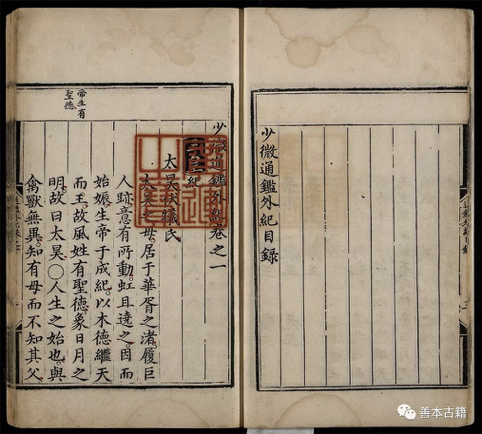 少微通鑑外紀目錄
少微通鑑外紀卷之一
紀
太昊伏羲氏
太昊之母居于華胥之渚履巨
人跡意有所動虹且遶之因而
始娠生帝于成紀以木德繼天
而王故風姓有聖德象日月之
明故曰太昊〇人生之始也與
禽獸無異知有母而不知其父
帝生有
聖德
善本古籍